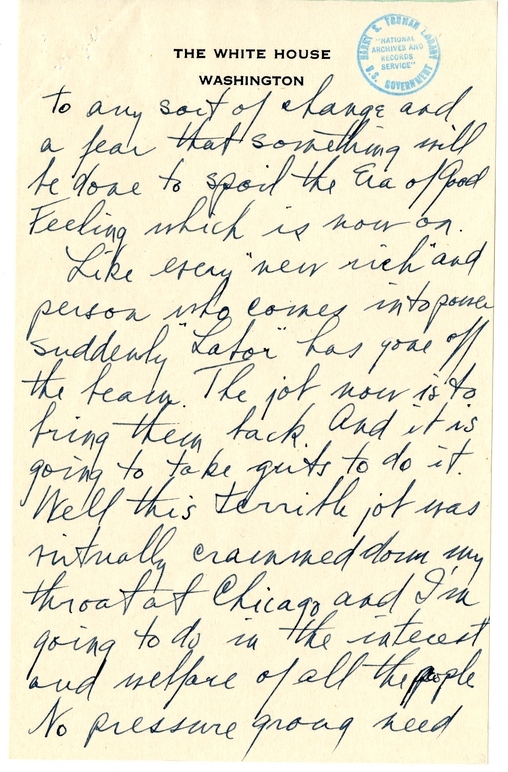 THE WHITE HOUSE
WASHINGTON
HARRY S. TRUMAN LIBRARY
"NATIONAL
ARCHIVES AND
RECORDS
SERVICE"
U.S. GOVERNMENT
to any sort of change and
a fear that something will
be done to spoil the Era of Good
Feeling which is now on.
Like every "new rich" and
person who comes into power
suddenly "Labor" has gone off
the beam. The job now is to
bring them back. And it is
going to take guts to do it.
Well this terrible job was
virtually crammed down my
throat at Chicago and I'm
going to do in the interest
and welfare of all the people
No pressure group need